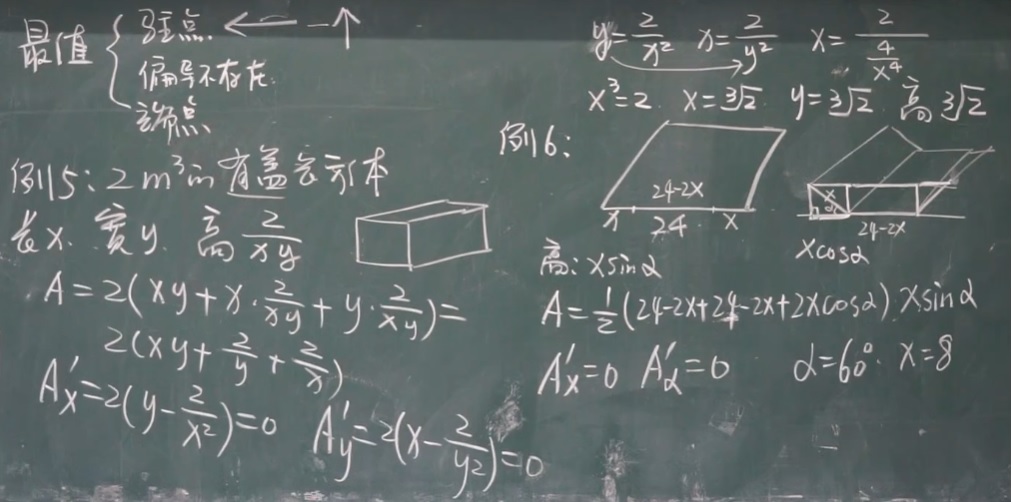 最值 { 驻点 ← 一 ↑
偏导不存在
端点
例5: 2m³in 有盖长方体
长x. 宽y. 高 2/xy
A=2(xy+x·2/xy+y·2/xy)=
2(xy+2/y+2/x)
A'x=2(y-2/x²)=0 A'y=2(x-2/y²)=0
y=2/x² x=2/y² x=2/(4/x⁴)
x³=2 x=3√2 y=3√2 高3√2
例6:
24-2x
x 24 x
α
24-2x
xcosα
高: xsinα
A=1/2(24-2x+24-2x+2xcosα).xsinα
A'x=0 A'α=0 α=60° x=8